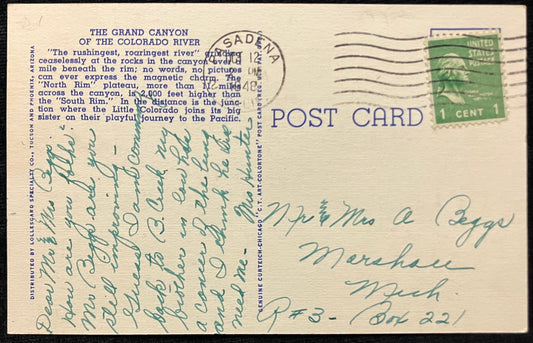 THE GRAND CANYON
OF THE COLORADO RIVER
"The rushingest, roaringest river" grinding
ceaselessly at the rocks in the canyon over a
mile beneath the rim; no words, no pictures
can ever express the magnetic charm. The
"North Rim" plateau, more than 10 miles
across the canyon, is 2,000 feet higher than
the "South Rim." In the distance is the junc-
tion where the Little Colorado joins its big
sister on their playful journey to the Pacific.
PASADENA
12
UNITED
STATES
POSTAGE
1 CENT 1
POST CARD
DISTRIBUTED BY LOLLESGARD SPECIALTY CO., TUCSON AND PHOENIX, ARIZONA
GENUINE CURTEICH-CHICAGO "C.T. ART-COLORTONE" POST CARD
Dear Mr & Mrs Beggs:
How are you folks?
Mr Beggs are you
still improving -
I guess I am coming
back to B. Creek my
brother in law has
a cancer of the lung
and I think he &
need me - Mrs Hunter
Mr & Mrs A Beggs
Marshall
Mich.
R#3- Box 221